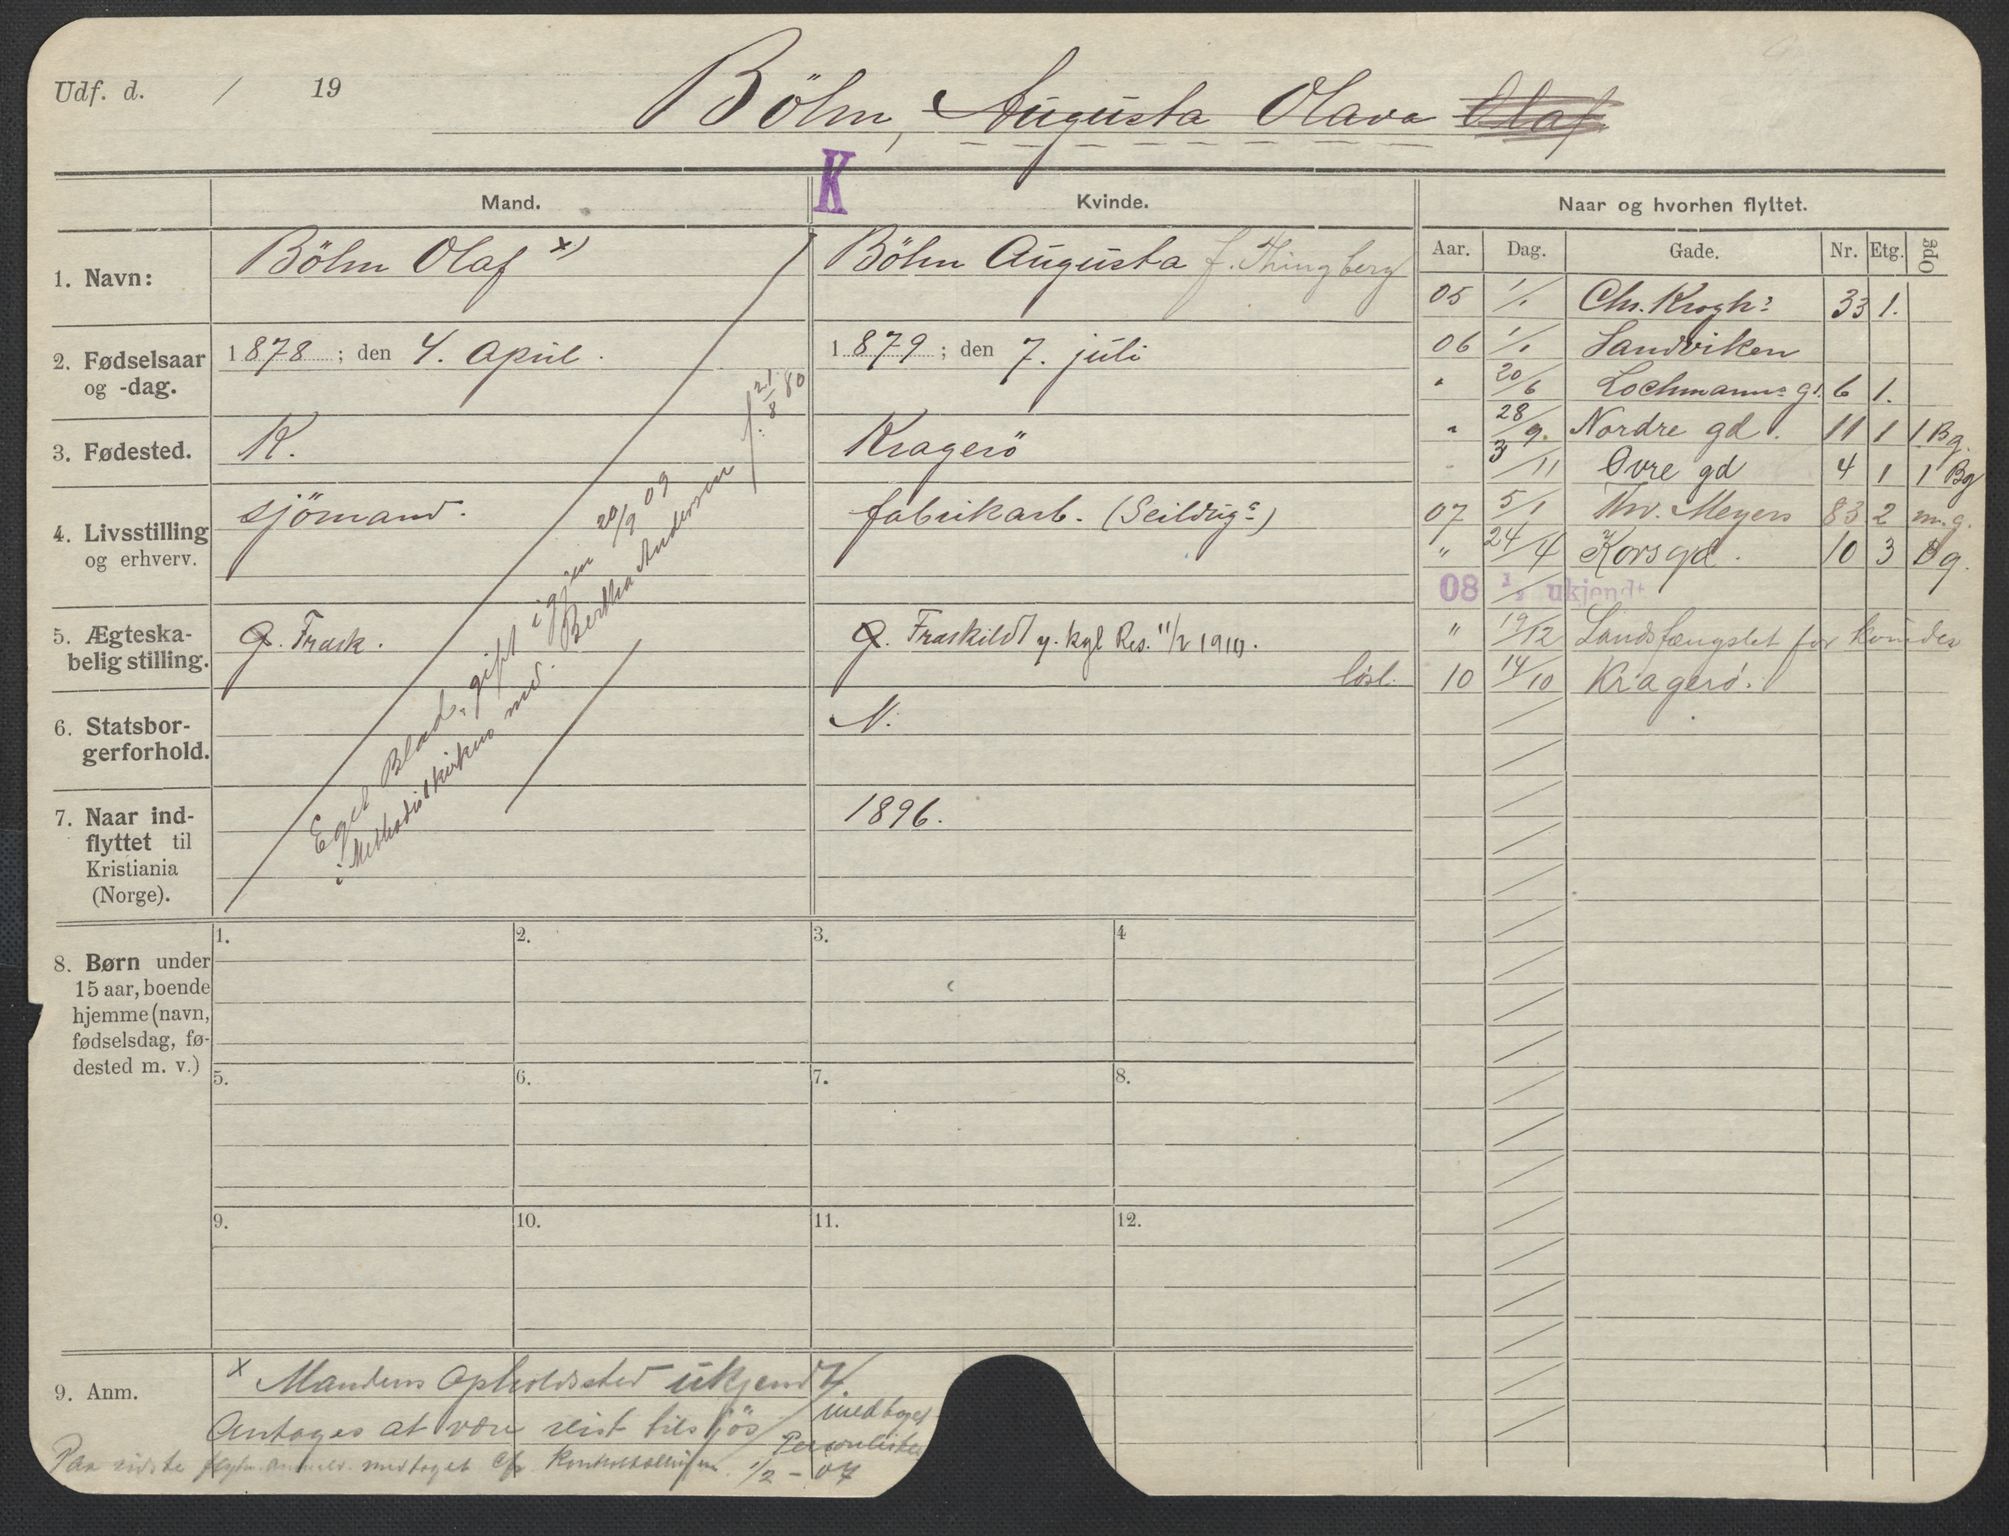 Udf. d. / 19
Böhm, Augusta Olava Olaf
K
Mand.
Kvinde.
Naar og hvorhen flyttet.
Aar. Dag. Gade. Nr. Etg. Opg
1. Navn:
Böhm Olaf x)
Böhm Augusta f. Thingberg
2. Fødselsaar
og -dag.
1878; den 4. April.
1879; den 7. juli
3. Fødested.
K.
Kragerö
4. Livsstilling
og erhverv.
sjömand.
fabrikarb. (Seildugs)
5. Ægteska-
belig stilling.
G. Frask.
G. Fraskildt v. kgl Res. 11/2 1910.
løsl.
6. Statsbor-
gerforhold.
N.
7. Naar ind-
flyttet til
Kristiania
(Norge).
1896.
Eget Blad, gift igjen 20/9 09
i Methodistkirken md. Bertha Andersen f. 21/8 80
05 1/1 Chr. Kroghs 33 1.
06 1/1 Sandviken
" 20/6 Lochmanns gd. 6 1.
" 28/9. Nordre gd. 11 1 1 Bg.
3/11 Øvre gd 4 1 1 Bg
07 5/1 Thv. Meyers 83 2 m.g.
" 24/4 Korsgd. 10 3 Bg.
08 1/2 ukjendt
" 19/12 Landsfængslet for kvinder
10 14/10 Kragerø.
8. Børn under
15 aar, boende
hjemme (navn,
fødselsdag, fø-
dested m. v.)
1. 2. 3. 4
5. 6. 7. 8.
9. 10. 11. 12.
9. Anm.
x Mandens Opholdssted ukjendt.
Antages at være reist tilsjøs
Paa sidste medtaget Kontroltællingen 1/2 - 07
medtaget
Personlisten